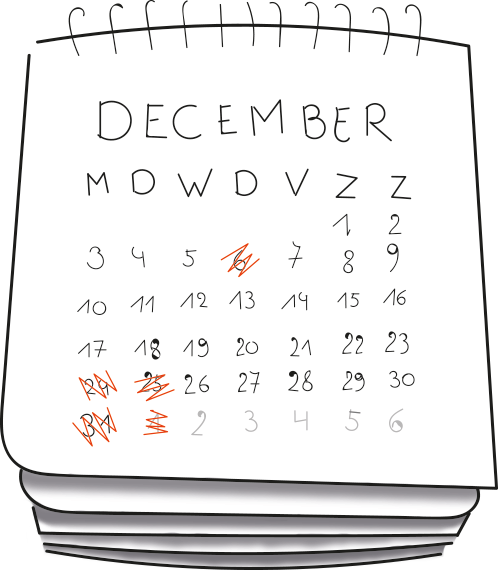 DECEMBER
M D W D V Z Z
1 2
3 4 5 6 7 8 9
10 11 12 13 14 15 16
17 18 19 20 21 22 23
24 25 26 27 28 29 30
31 1 2 3 4 5 6